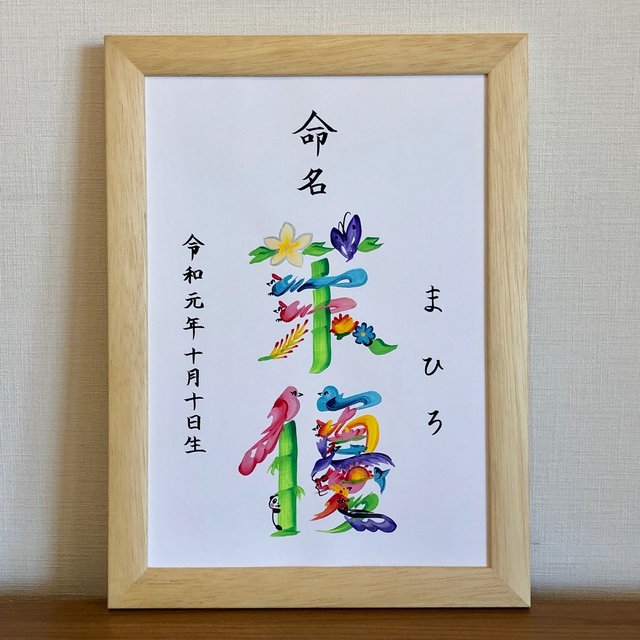 命名
茉優
まひろ
令和元年十月十日生